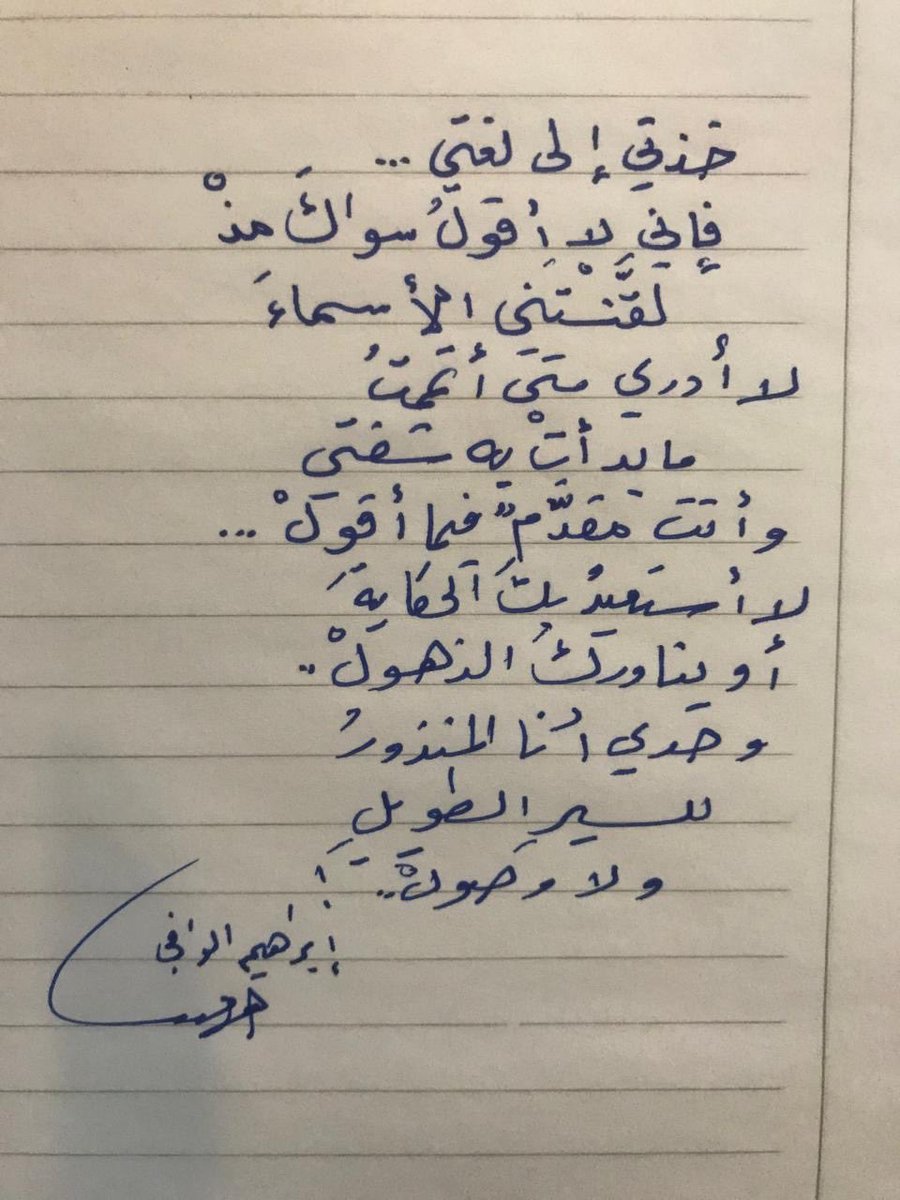 خذني إلى لغتي ...
فإني لا أقولُ سواكَ مذْ
لقَّنْتني الأسماءَ
لا أدري متى أتممتُ
ما بدأتْ به شفتي
وأنتَ مقدّمٌ فيما أقولْ ...
لا أستعيدُ بكَ الحكايةَ
أو يناوركَ الذهولْ ..
وحدي أنا المنذورُ
للسيرِ الطويلِ
ولا وصولْ .. !
إبراهيم الوافي